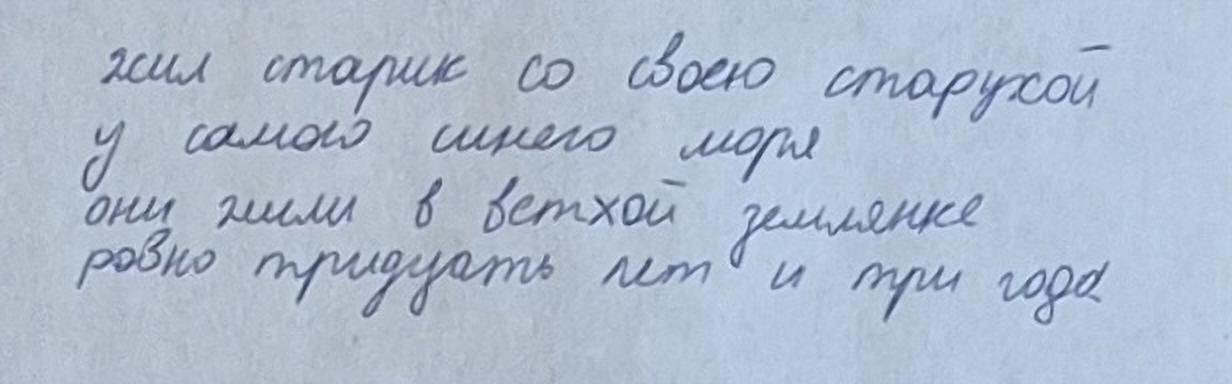 жил старик со своею старухой
у самого синего моря
они жили в ветхой землянке
ровно тридцать лет и три года